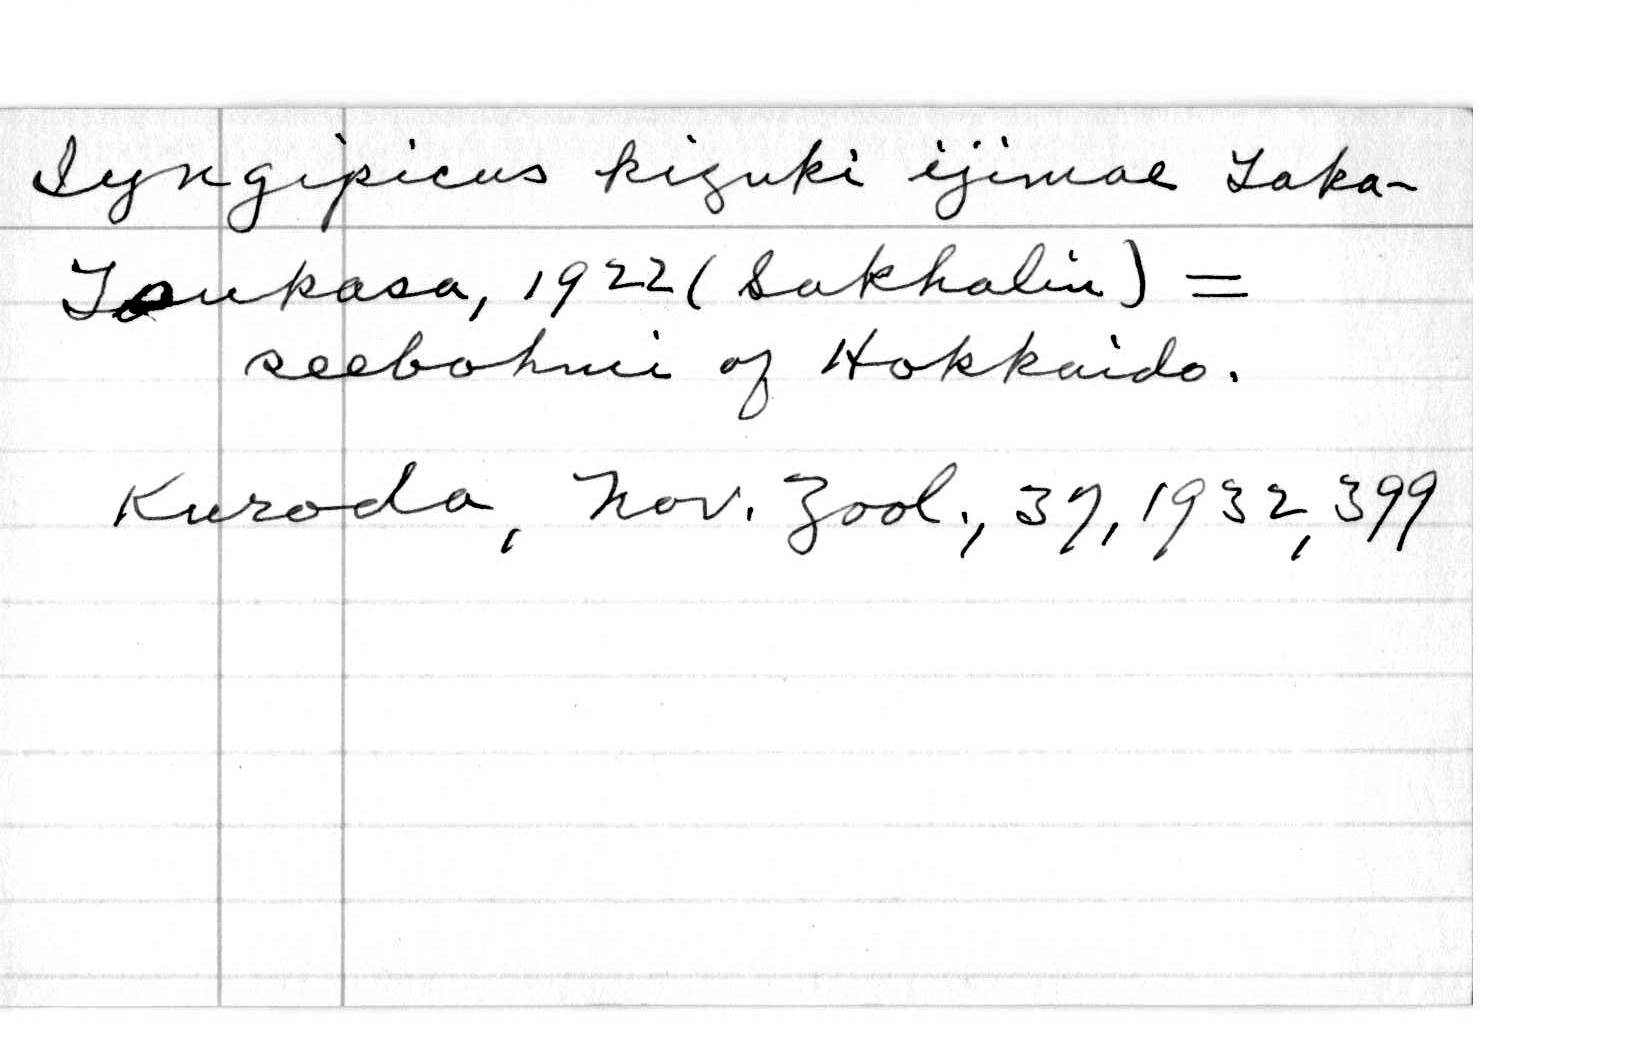 Iyngipicus kizuki ijimae Taka-
Tsukasa, 1922 (Sakhalin) =
seebohmi of Hokkaido.
Kuroda, Nov. Zool., 37, 1932, 399